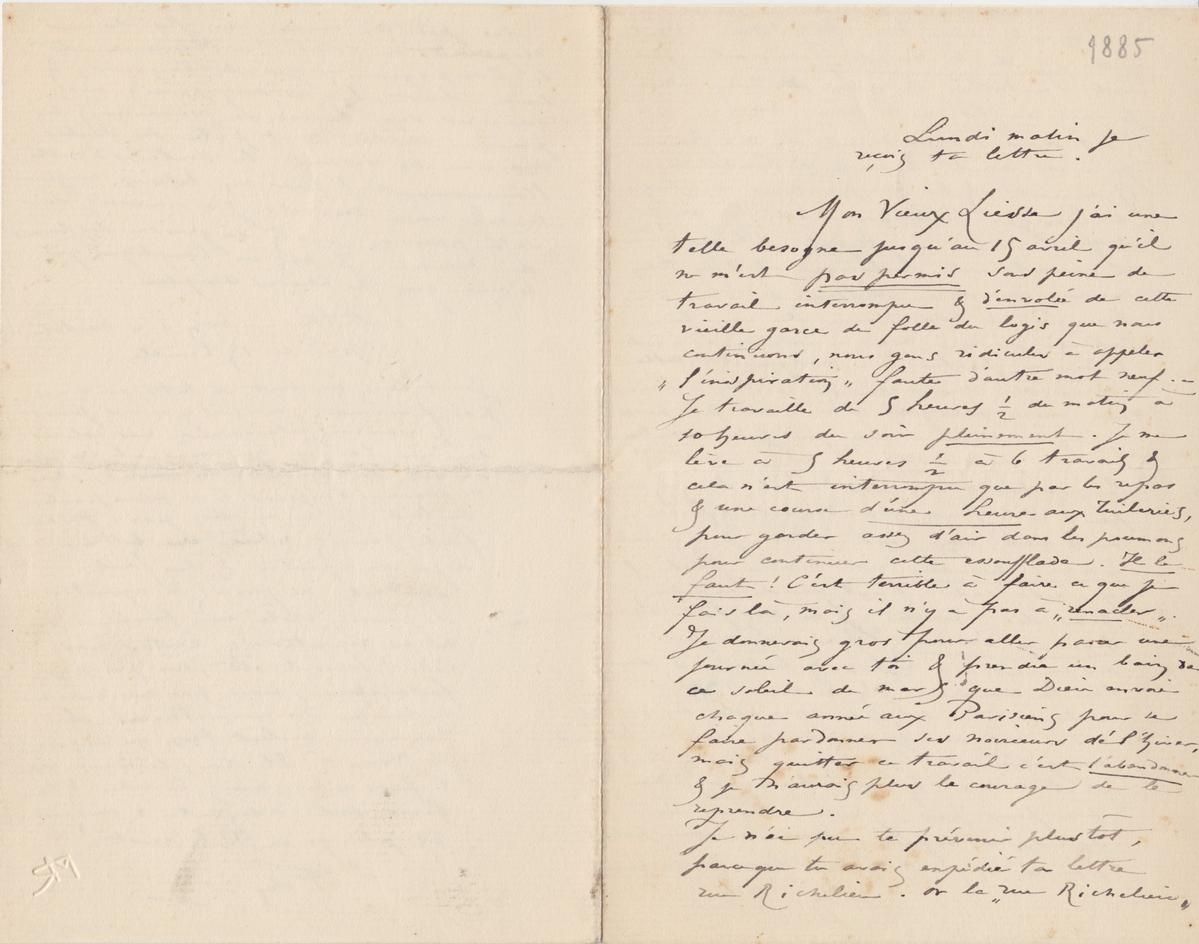 1885
Lundi matin je
reçois ta lettre.
Mon Vieux Liesse j'ai une
telle besogne jusqu'au 15 avril qu'il
ne m'est pas permis sous peine de
travail interrompu & d'envolée de cette
vieille garce de folle du logis que nous
continuons, nous gens ridicules à appeler
„ l'inspiration „ faute d'autre mot neuf. _
Je travaille de 5 heures ½ du matin à
10 heures du soir pleinement. Je me
lève à 5 heures ½ à 6 travail &
cela n'est interrompu que par les repas
& une course d'une heure aux Tuileries,
pour garder assez d'air dans les poumons
pour continuer cette essoufflade. Il le
faut ! C'est terrible à faire ce que je
fais là, mais il n'y a pas à „renacler„.
Je donnerais gros pour aller passer une
journée avec toi & prendre un bain de
ce soleil de mars que Dieu envoie
chaque année aux Parisiens pour se
faire pardonner ses noirceurs de l'hiver,
mais quitter ce travail c'est l'abandonner
& je n'aurais plus le courage de le
reprendre.
Je n'ai pu te prévenir plustôt,
parceque tu avais expédié ta lettre
rue Richelieu. or la „rue Richelieu„